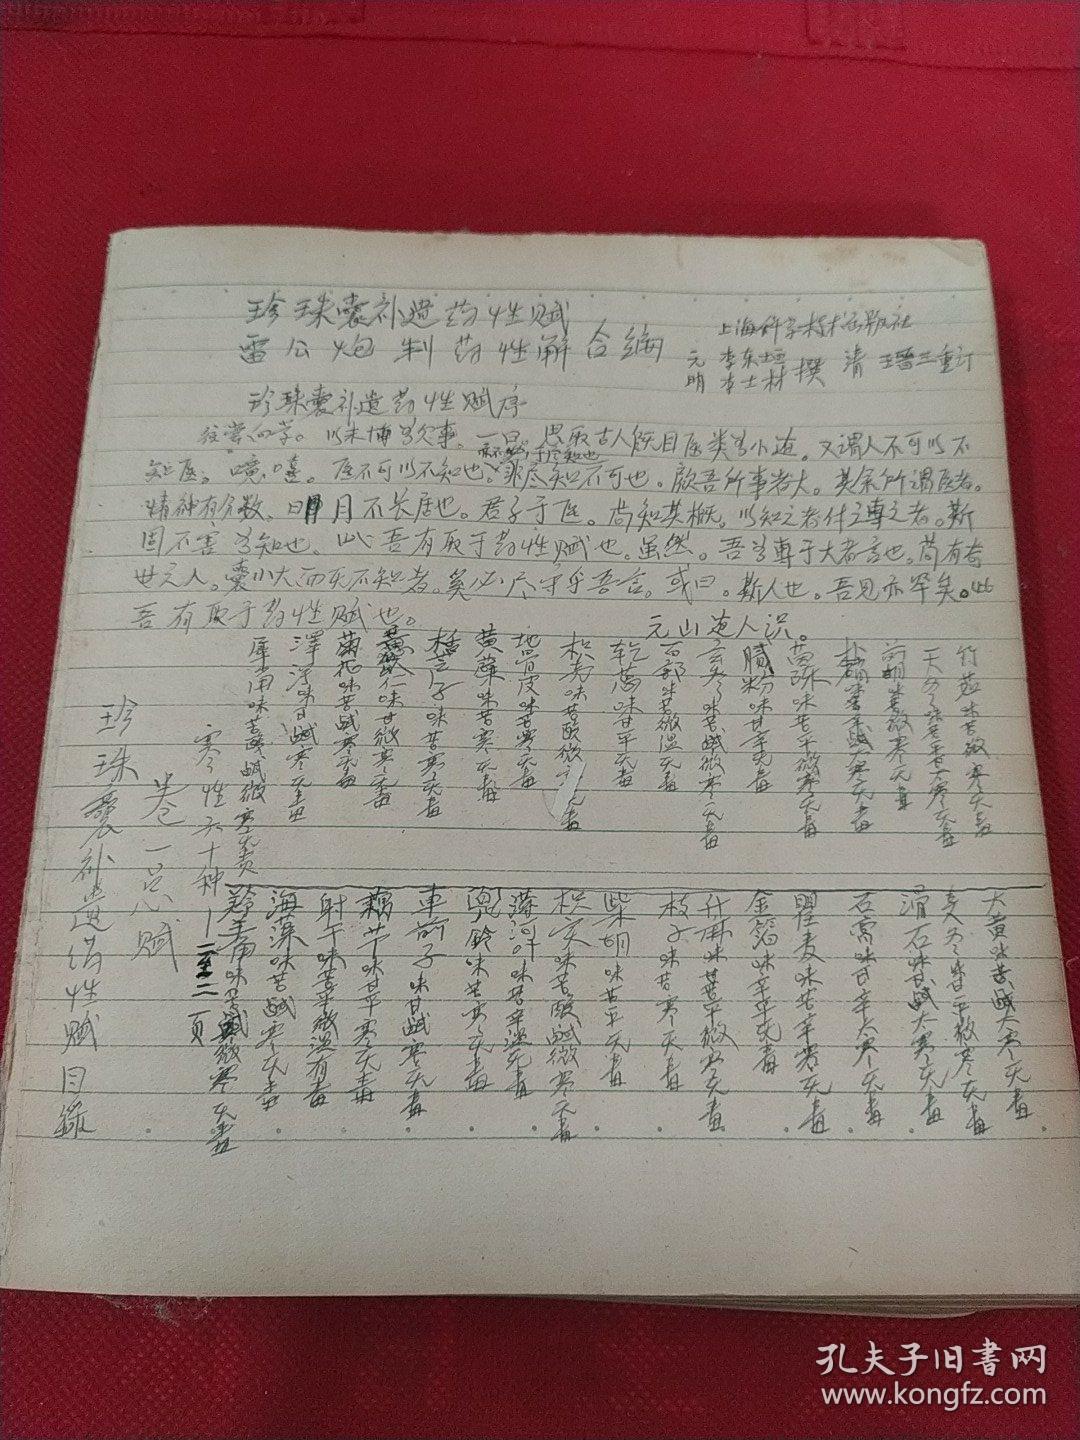 珍珠囊补遗药性赋
雷公炮制药性解合编
上海科学技术出版社
元 李东垣
明 李士材 撰 清 王晋三重订
珍珠囊补遗药性赋序
往尝向学。以未博为欠事。一日。思取古人既目医类为小道。又谓人不可以不
知医。噫。嘻。医不可以不知也。非尽知不可也。顾吾所事者大。其余所谓医者。
精神有分数。日月不长居也。君子于医。尚知其概。以知之者付之专之者。斯
固不害为知也。此吾有取于药性赋也。虽然。吾为专于大者言也。苟有奇
世之人。囊小大而无不知者。奚必尽守乎吾言。或曰。斯人也。吾见亦罕矣。此
吾有取于药性赋也。
元山道人识。
珍珠囊补遗药性赋目录
卷一总赋
寒性六十种
一至二页
犀角味苦酸咸微寒无毒
泽泻味甘咸寒无毒
菊花味苦咸寒无毒
仁味甘微寒无毒
子味苦寒无毒
黄药味苦寒无毒
地骨皮味苦寒无毒
枳壳味苦酸微寒无毒
乾葛味甘平无毒
百部味苦微温无毒
玄参味苦咸微寒无毒
腻粉味甘辛无毒
茵陈味苦平微寒无毒
朴硝味苦辛咸大寒无毒
前胡味苦微寒无毒
天冬味苦大寒无毒
竹茹味苦微寒无毒
羚羊角味苦咸微寒无毒
海藻味苦咸寒无毒
射干味苦平微温有毒
藕节味甘平寒无毒
車前子味甘咸寒无毒
兜铃味苦寒无毒
薄荷叶味苦辛温无毒
枳实味苦酸咸微寒无毒
柴胡味苦平无毒
枝子味苦寒无毒
升麻味苦平微寒无毒
金箔味辛平无毒
瞿麦味苦辛寒无毒
石膏味甘辛大寒无毒
滑石味甘咸大寒无毒
麦冬味甘平微寒无毒
大黄味苦咸大寒无毒
孔夫子旧书网
www.kongfz.com